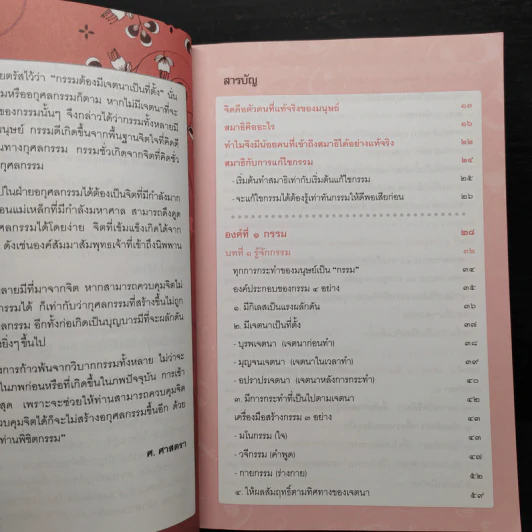 ยตรัสไว้ว่า "กรรมต้องมีเจตนาเป็นที่ตั้ง" นั่น
มหรืออกุศลกรรมก็ตาม หากไม่มีเจตนาที่จะ
ของกรรมนั้นๆ จึงกล่าวได้ว่ากรรมทั้งหลายมี
มนุษย์ กรรมดีเกิดขึ้นจากพื้นฐานจิตใจที่คิดดี
นทางกุศลกรรม กรรมชั่วเกิดจากจิตที่คิดชั่ว
กุศลกรรม
ปในฝ่ายอกุศลกรรมได้ต้องเป็นจิตที่มีกำลังมาก
อนแม่เหล็กที่มีกำลังมหาศาล สามารถดึงดูด
ศลกรรมได้โดยง่าย จิตที่เข้มแข็งเกิดได้จาก
ดังเช่นองค์สัมมาสัมพุทธเจ้าที่เข้าถึงนิพพาน
ลายมีที่มาจากจิต หากสามารถควบคุมจิตไม่
กรรมได้ ก็เท่ากับว่ากุศลกรรมที่สร้างขึ้นไม่ถูก
ลกรรม อีกทั้งก่อเกิดเป็นบุญบารมีที่จะผลักดัน
งยิ่งๆ ขึ้นไป
งการก้าวพ้นจากวิบากกรรมทั้งหลาย ไม่ว่าจะ
ในภพก่อนหรือที่เกิดขึ้นในภพปัจจุบัน การเข้า
สุด เพราะจะช่วยให้ท่านสามารถควบคุมจิต
วบคุมจิตได้ก็จะไม่สร้างอกุศลกรรมขึ้นอีก ด้วย
ท่านพิชิตกรรม"
ศ. ศาสตรา
สารบัญ
จิตคือตัวตนที่แท้จริงของมนุษย์ ๑๓
สมาธิคืออะไร ๑๖
ทำไมจึงมีน้อยคนที่เข้าถึงสมาธิได้อย่างแท้จริง ๒๒
สมาธิกับการแก้ไขกรรม ๒๔
- เริ่มต้นทำสมาธิเท่ากับเริ่มต้นแก้ไขกรรม ๒๕
- จะแก้ไขกรรมได้ต้องรู้เท่าทันกรรมให้ดีพอเสียก่อน ๒๖
องค์ที่ ๑ กรรม ๒๘
บทที่ ๑ รู้จักกรรม ๓๒
ทุกการกระทำของมนุษย์เป็น "กรรม" ๓๔
องค์ประกอบของกรรม ๔ อย่าง ๓๕
๑. มีกิเลสเป็นแรงผลักดัน ๓๖
๒. มีเจตนาเป็นที่ตั้ง ๓๗
- บุรพเจตนา (เจตนาก่อนทำ) ๓๘
- มุญจนเจตนา (เจตนาในเวลาทำ) ๓๙
- อปราปรเจตนา (เจตนาหลังการกระทำ) ๔๐
๓. มีการกระทำที่เป็นไปตามเจตนา ๔๒
เครื่องมือสร้างกรรม ๓ อย่าง ๔๓
- มโนกรรม (ใจ) ๔๓
- วจีกรรม (คำพูด) ๔๗
- กายกรรม (ร่างกาย) ๕๒
๔. ให้ผลสัมฤทธิ์ตามทิศทางของเจตนา ๕๙